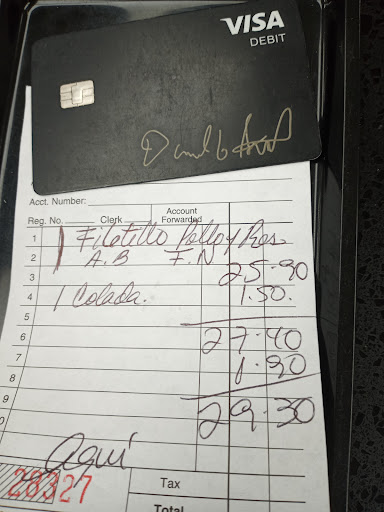 VISA
DEBIT
Acct. Number:
Reg. No. Clerk Account Forwarded
1 1 Filetillo Pollo y Res
2 A.B F.N
3 25.90
4 1 Colada. 1.50.
5
6 27.40
7 1.90
8
9 29.30
Aquí
28327
Tax
Total